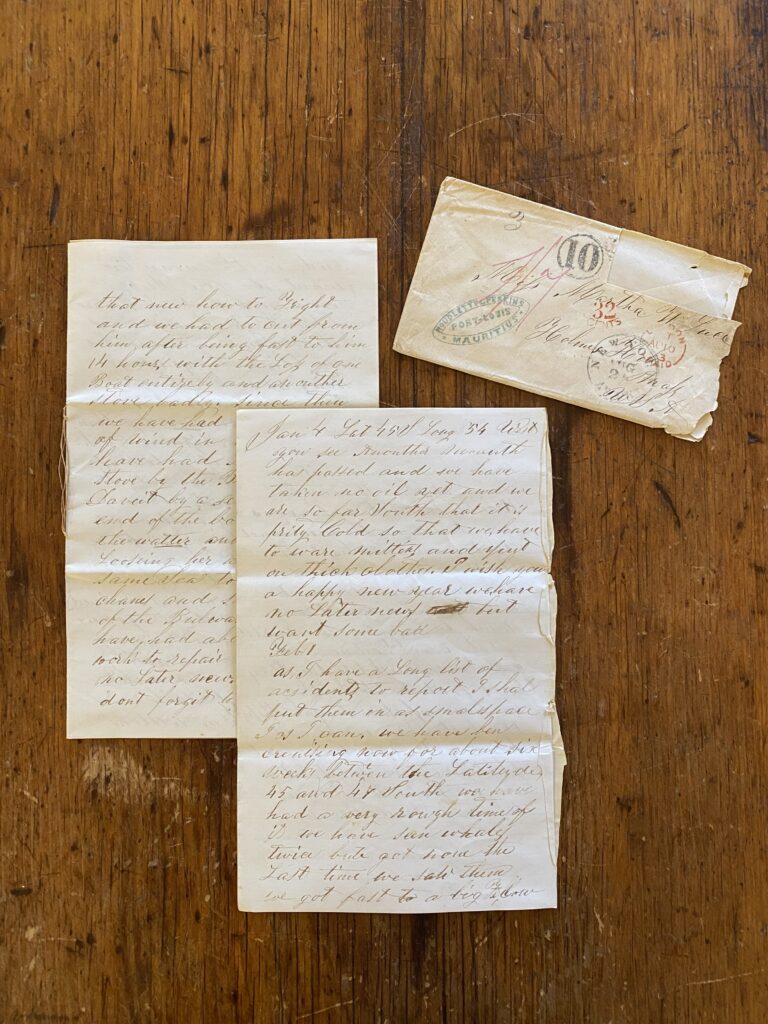 that new how to Fight
and we had to cut from
him after being fast to him
14 hours with the Loss of one
Boat entirely and anouther
stove badly. since then
we have had
of wind in
heave had
stove by the B
Daveit by a se
end of the bo
the watter and
Looking her
same sea to
chanes and
of the Bulwar
have had abo
work to repair
no Later news
dont forgit to
Jan 4 Lat 45 S Long 54 East
now se Anouther mounth
has passed and we have
taken no oil yet and we
are so far South that it is
prity Cold so that we have
to ware mittens and put
on thick clothes I wish you
a happy new year we have
no Later news but
want some bad
Feb 1
as I have a Long list of
accidents to report I shal
put them in as smal space
as I can, we have ben
cruising now for about six
weeks between the Latitudes
45 and 48 South we have
had a very rough time of
it we have sean whales
twice but got none the
Last time we saw them
we got fast to a big felow
3
10
Mrs Martha
32
CENTS
HOUDLETTE & PERKINS
PORT-LOUIS
MAURITIUS
Holmes Hole
Mass
PAID
AUG
N
U.S.A